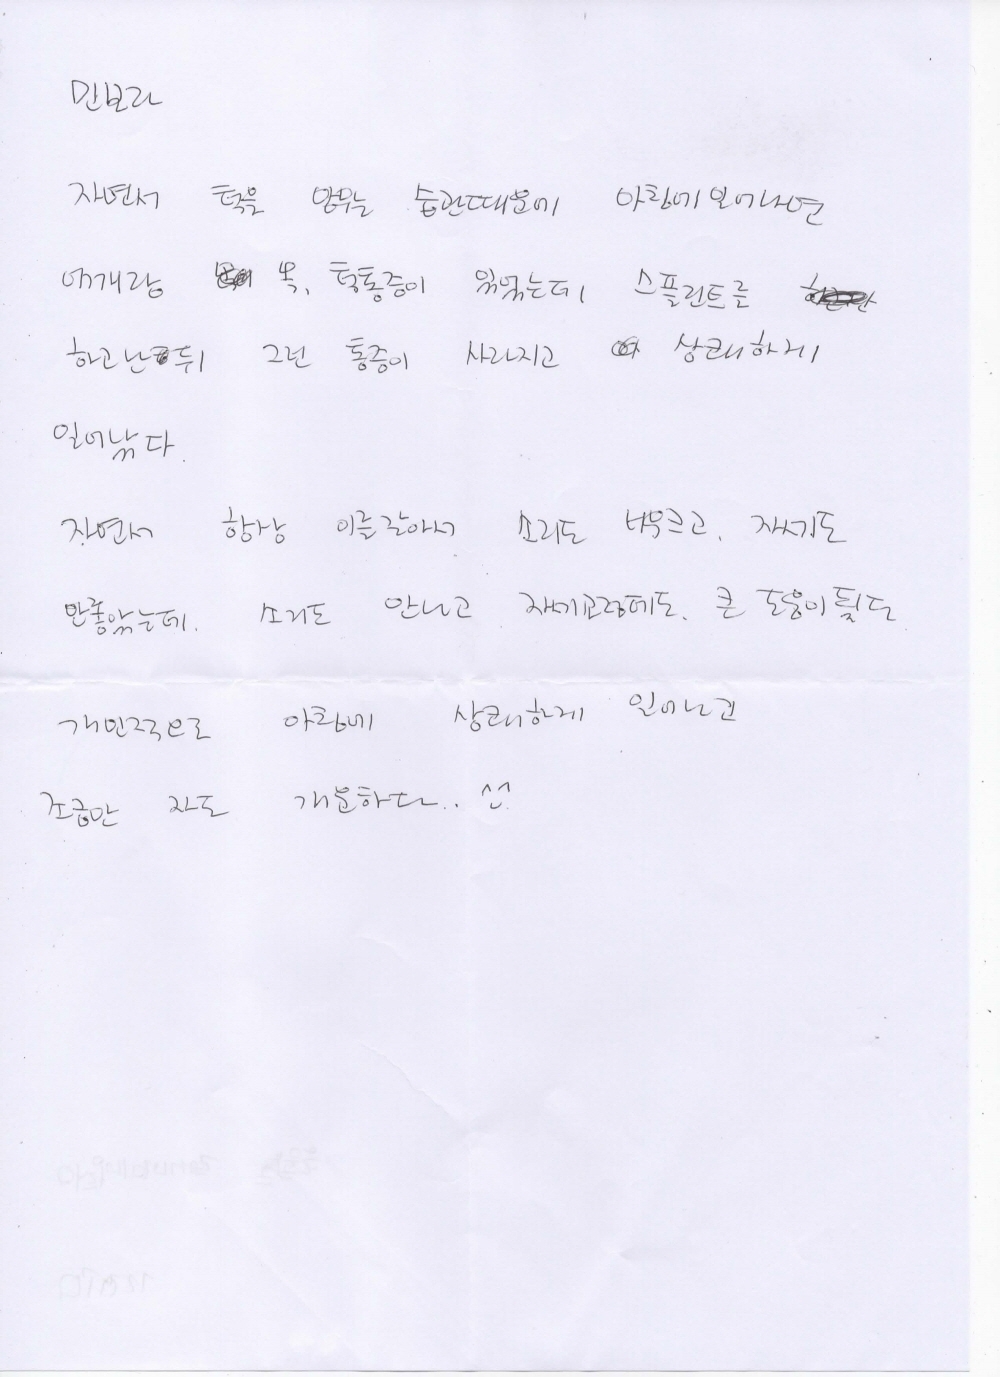 민보라
자면서 턱을 앙무는 습관때문에 아침에 일어나면
어깨랑 목, 턱통증이 있었는데 스플린트를
하고난 뒤 그런 통증이 사라지고 상쾌하게
일어났다.
자면서 항상 이를갈아서 소리도 시끄럽고, 자세도
안좋았는데. 소리도 안나고 자세교정에도. 큰 도움이됬다
개인적으로 아침에 상쾌하게 일어나고
조금만 자도 개운하다..